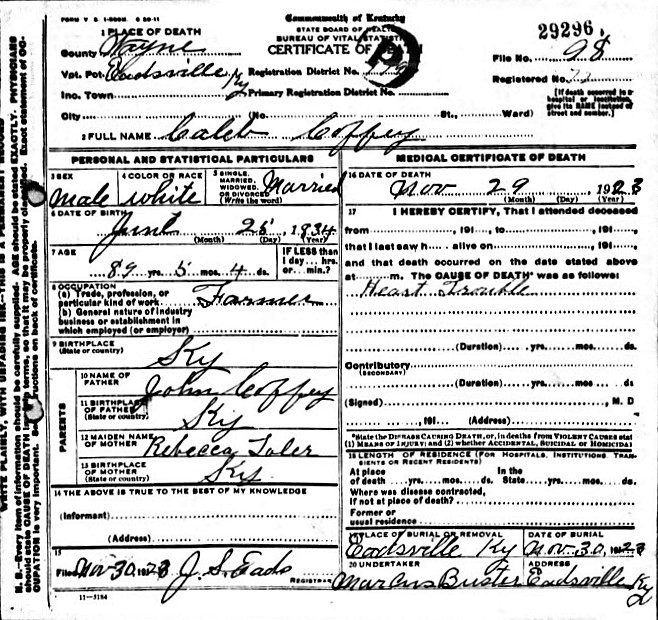 FORM V. S. 1-
Commonwealth of Kentucky
STATE BOARD OF HEALTH
BUREAU OF VITAL STATISTICS
CERTIFICATE OF DEATH
29296
1 PLACE OF DEATH
County Wayne
File No. 98
Vot. Pct. Eadsville Ky Registration District No.
Registered No.
Inc. Town Primary Registration District No.
City (No. St., Ward)
[If death occurred in a hospital or institution, give its NAME instead of street and number.]
2 FULL NAME Caleb Coffey
PERSONAL AND STATISTICAL PARTICULARS
3 SEX Male
4 COLOR OR RACE White
5 SINGLE, MARRIED, WIDOWED, OR DIVORCED (Write the word) Married
6 DATE OF BIRTH
June 25, 1834
(Month) (Day) (Year)
7 AGE
89 yrs. 5 mos. 4 ds.
IF LESS than 1 day... hrs. or... min.?
8 OCCUPATION
(a) Trade, profession, or particular kind of work Farmer
(b) General nature of industry business or establishment in which employed (or employer)
9 BIRTHPLACE
(State or country) Ky
PARENTS
10 NAME OF FATHER John Coffey
11 BIRTHPLACE OF FATHER
(State or country) Ky
12 MAIDEN NAME OF MOTHER Rebecca Toler
13 BIRTHPLACE OF MOTHER
(State or country) Ky
14 THE ABOVE IS TRUE TO THE BEST OF MY KNOWLEDGE
(Informant)
(Address)
15
Filed Nov 30, 1923 J. S. Eads
REGISTRAR
11—3184
MEDICAL CERTIFICATE OF DEATH
16 DATE OF DEATH
Nov 29 1923
(Month) (Day) (Year)
17 I HEREBY CERTIFY, That I attended deceased
from 191 , to 191 ,
that I last saw h alive on 191 ,
and that death occurred on the date stated above
at m. The CAUSE OF DEATH* was as follows:
Heart Trouble
(Duration) yrs. mos. ds
Contributory
(SECONDARY)
(Duration) yrs. mos. ds
(Signed) , M. D
, 191 (Address)
*State the DISEASE CAUSING DEATH, or, in deaths from VIOLENT CAUSES stat
(1) MEANS OF INJURY; and (2) whether ACCIDENTAL, SUICIDAL or HOMICIDAL
18 LENGTH OF RESIDENCE (FOR HOSPITALS, INSTITUTIONS, TRANSIENTS OR RECENT RESIDENTS)
At place of death yrs. mos. ds. In the State yrs. mos. ds
Where was disease contracted,
If not at place of death?
Former or
usual residence
19 PLACE OF BURIAL OR REMOVAL
Eadsville Ky
DATE OF BURIAL
Nov 30, 1923
20 UNDERTAKER
Marcus Buster
ADDRESS
Eadsville Ky